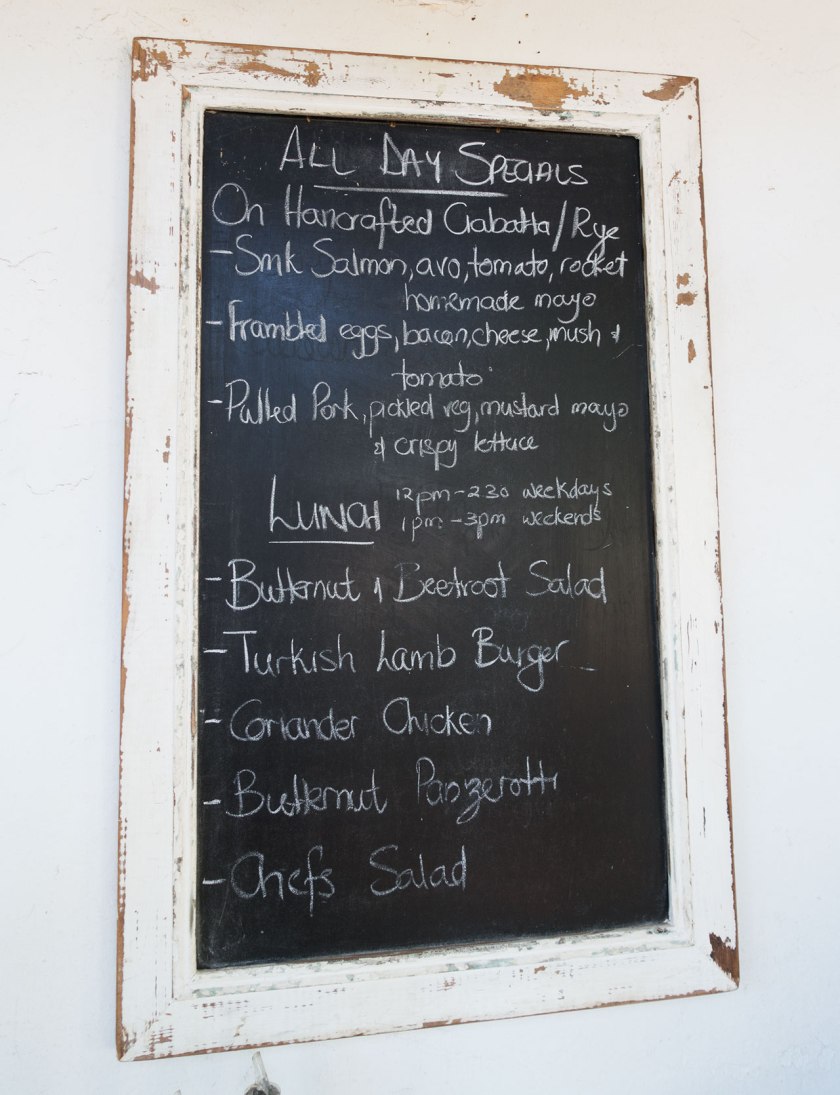 ALL DAY SPECIALS
On Hancrafted Ciabatta/Rye
- Smk Salmon, avo, tomato, rocket
homemade mayo
- Frambled eggs, bacon, cheese, mush &
tomato
- Pulled Pork, pickled veg, mustard mayo
& crispy lettuce
LUNCH 12pm - 230 weekdays
1pm - 3pm weekends
- Butternut & Beetroot Salad
- Turkish Lamb Burger
- Coriander Chicken
- Butternut Panzerotti
- Chefs Salad